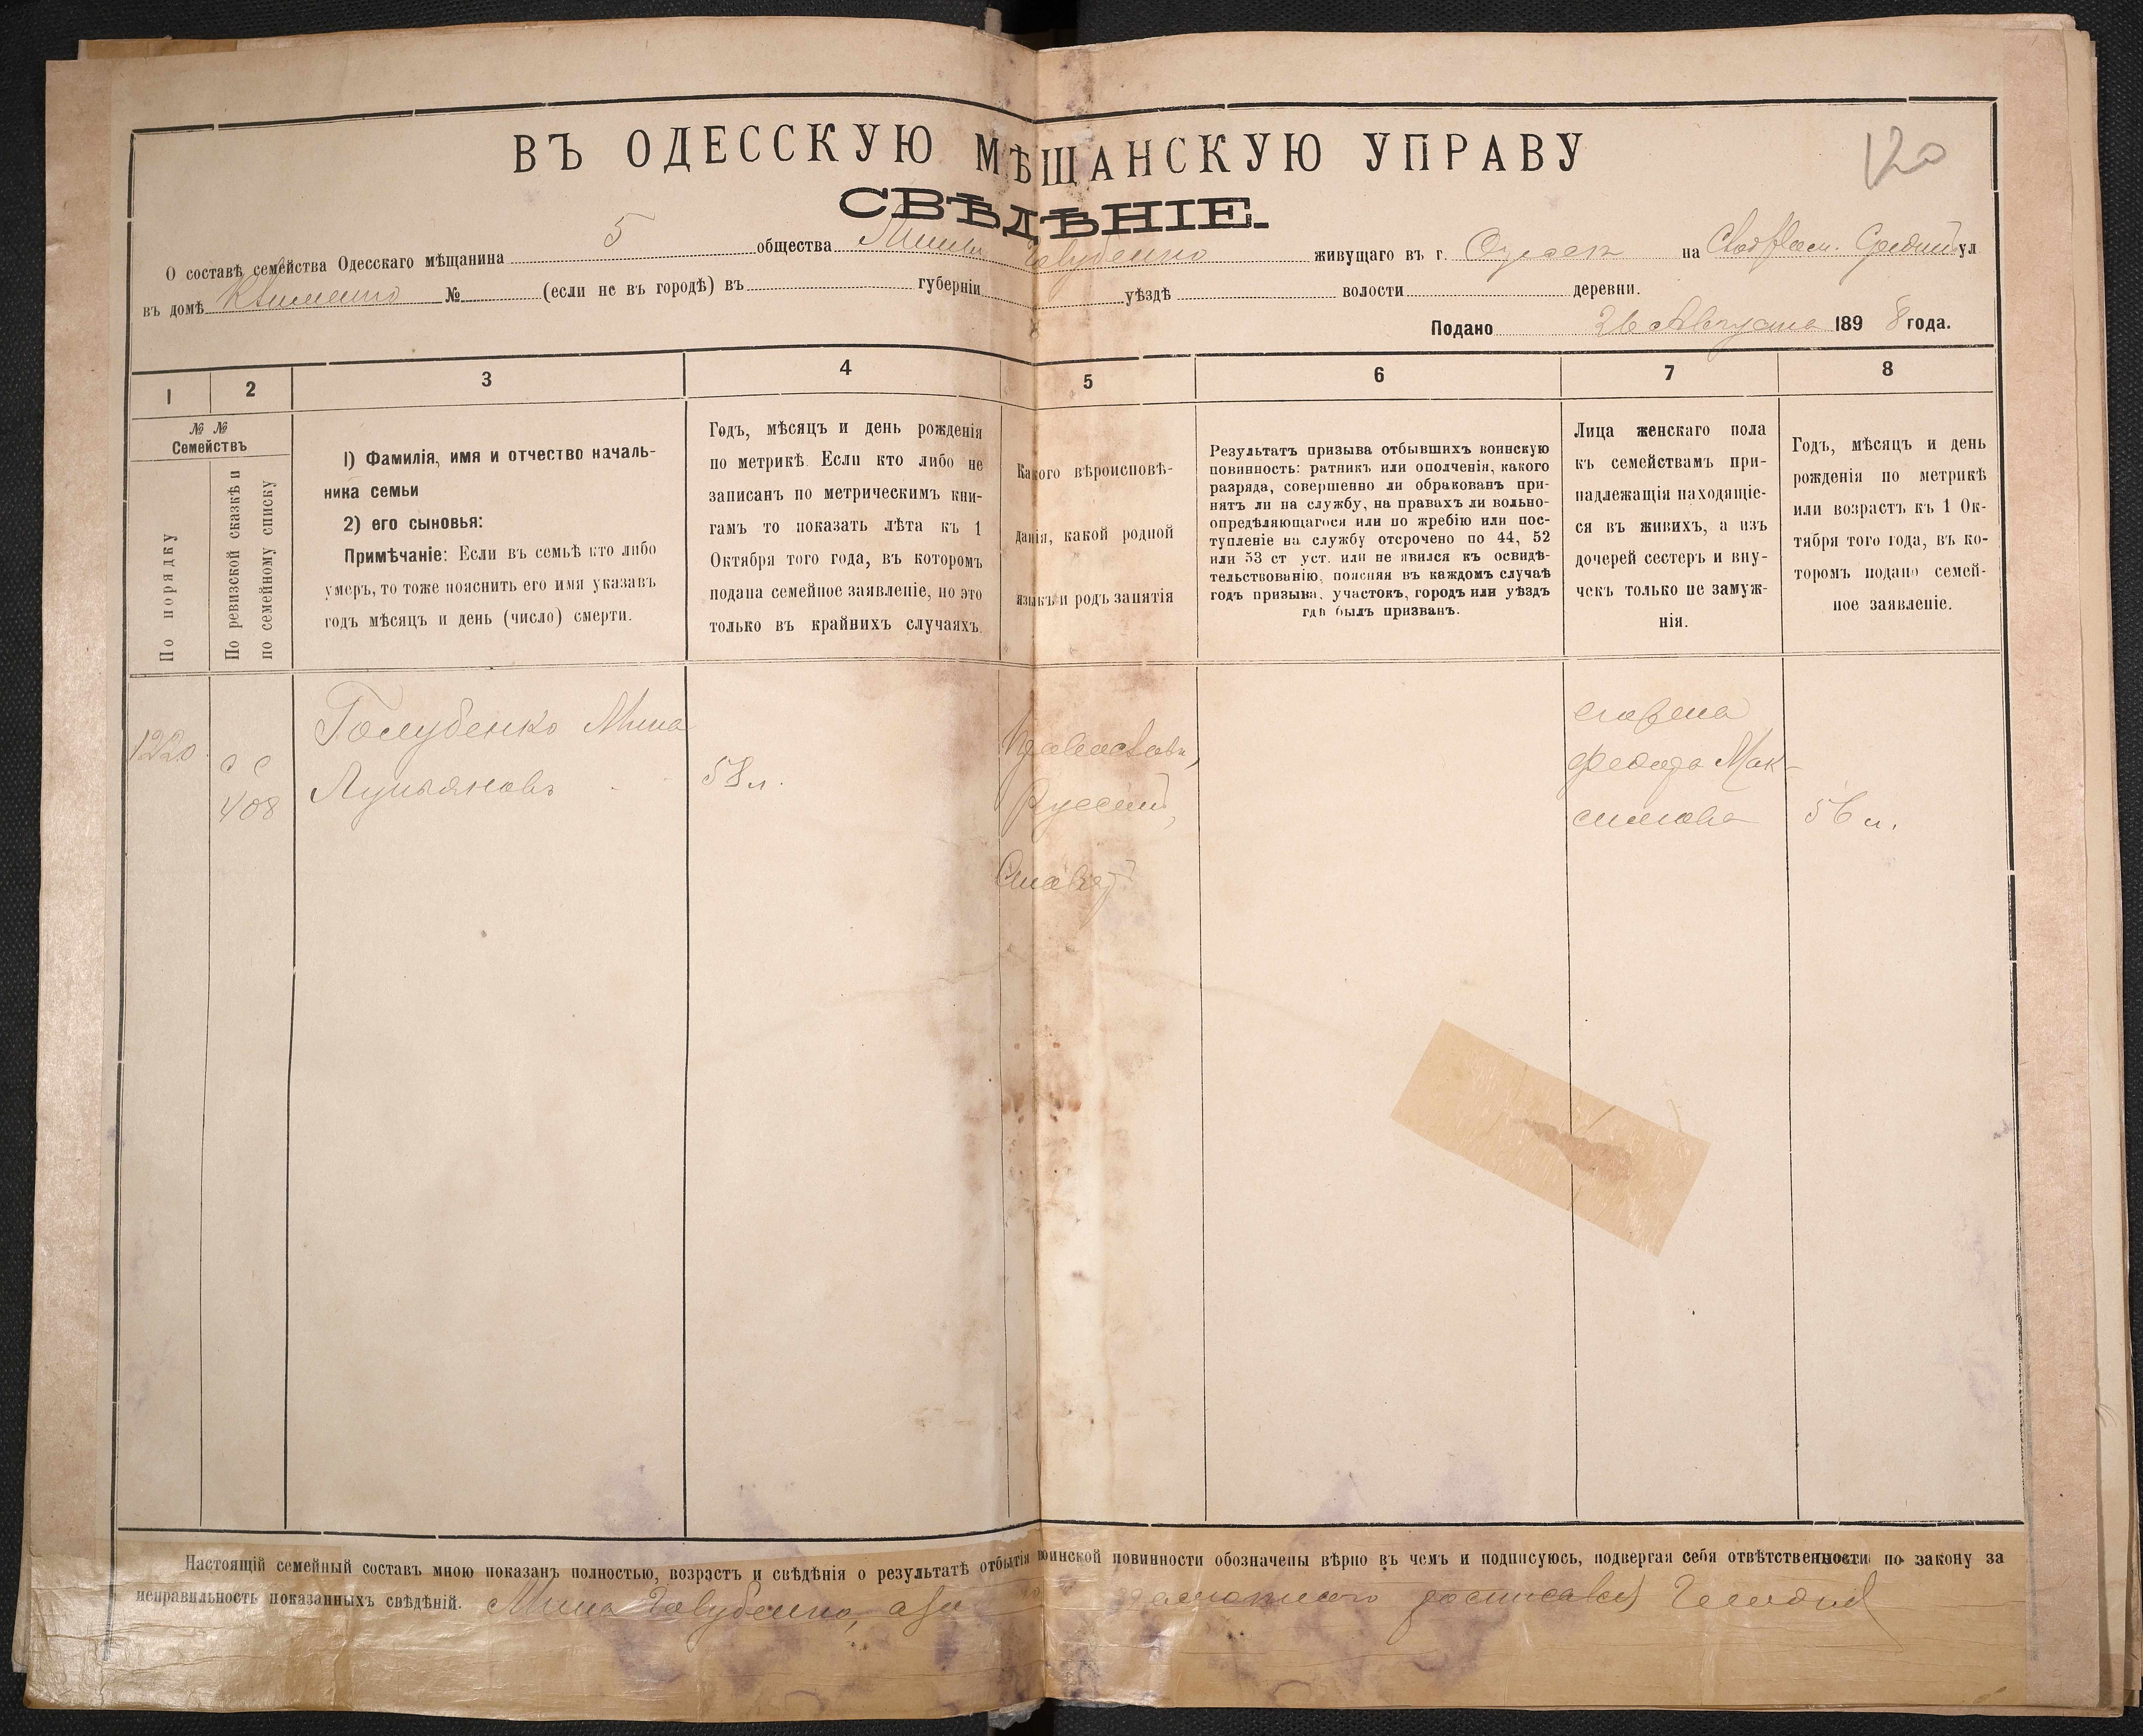 120
ВЪ ОДЕССКУЮ МѢЩАНСКУЮ УПРАВУ
СВѢДѢНІЕ.
О составѣ семейства Одесскаго мѣщанина 5 общества Мины Голубенко живущаго въ г. Одессѣ на Средней ул
въ домѣ № (если не въ городѣ) въ губерніи уѣздѣ волости деревни.
Подано 26 Августа 1898 года.
1 2 3 4 5 6 7 8
№ №
Семействъ
По порядку
По ревизской сказкѣ и
по семейному списку
1) Фамилія, имя и отчество началь-
ника семьи
2) его сыновья:
Примѣчаніе: Если въ семьѣ кто либо
умеръ, то тоже пояснить его имя указавъ
годъ мѣсяцъ и день (число) смерти.
Годъ, мѣсяцъ и день рожденія
по метрикѣ. Если кто либо не
записанъ по метрическимъ кни-
гамъ то показать лѣта къ 1
Октября того года, въ которомъ
подана семейное заявленіе, но это
только въ крайнихъ случаяхъ.
Какого вѣроисповѣ-
данія, какой родной
языкъ и родъ занятія
Результатъ призыва отбывшихъ воинскую
повинность: ратникъ или ополченія, какого
разряда, совершенно ли обракованъ при-
нятъ ли на службу, на правахъ ли вольно-
опредѣляющагося или по жребію или пос-
тупленіе на службу отсрочено по 44, 52
или 53 ст уст. или не явился къ освидѣ-
тельствованію, поясняя въ каждомъ случаѣ
годъ призыва, участокъ, городъ или уѣздъ
гдѣ былъ призванъ.
Лица женскаго пола
къ семействамъ при-
надлежащія находящіе-
ся въ живихъ, а изъ
дочерей сестеръ и вну-
чекъ только не замуж-
нія.
Годъ, мѣсяцъ и день
рожденія по метрикѣ
или возрастъ къ 1 Ок-
тября того года, въ ко-
торомъ подано семей-
ное заявленіе.
1220
с с
408
Голубенко Мина
Лукьяновъ
58 л.
Православн,
Русскій,
его жена
Феодора Мак-
симова
56 л.
Настоящій семейный составъ мною показанъ полностью, возрастъ и свѣдѣнія о результатѣ отбытія воинской повинности обозначены вѣрно въ чемъ и подписуюсь, подвергая себя отвѣтственности по закону за
неправильность показанныхъ свѣдѣній. Мина Голубенко, а за росписался